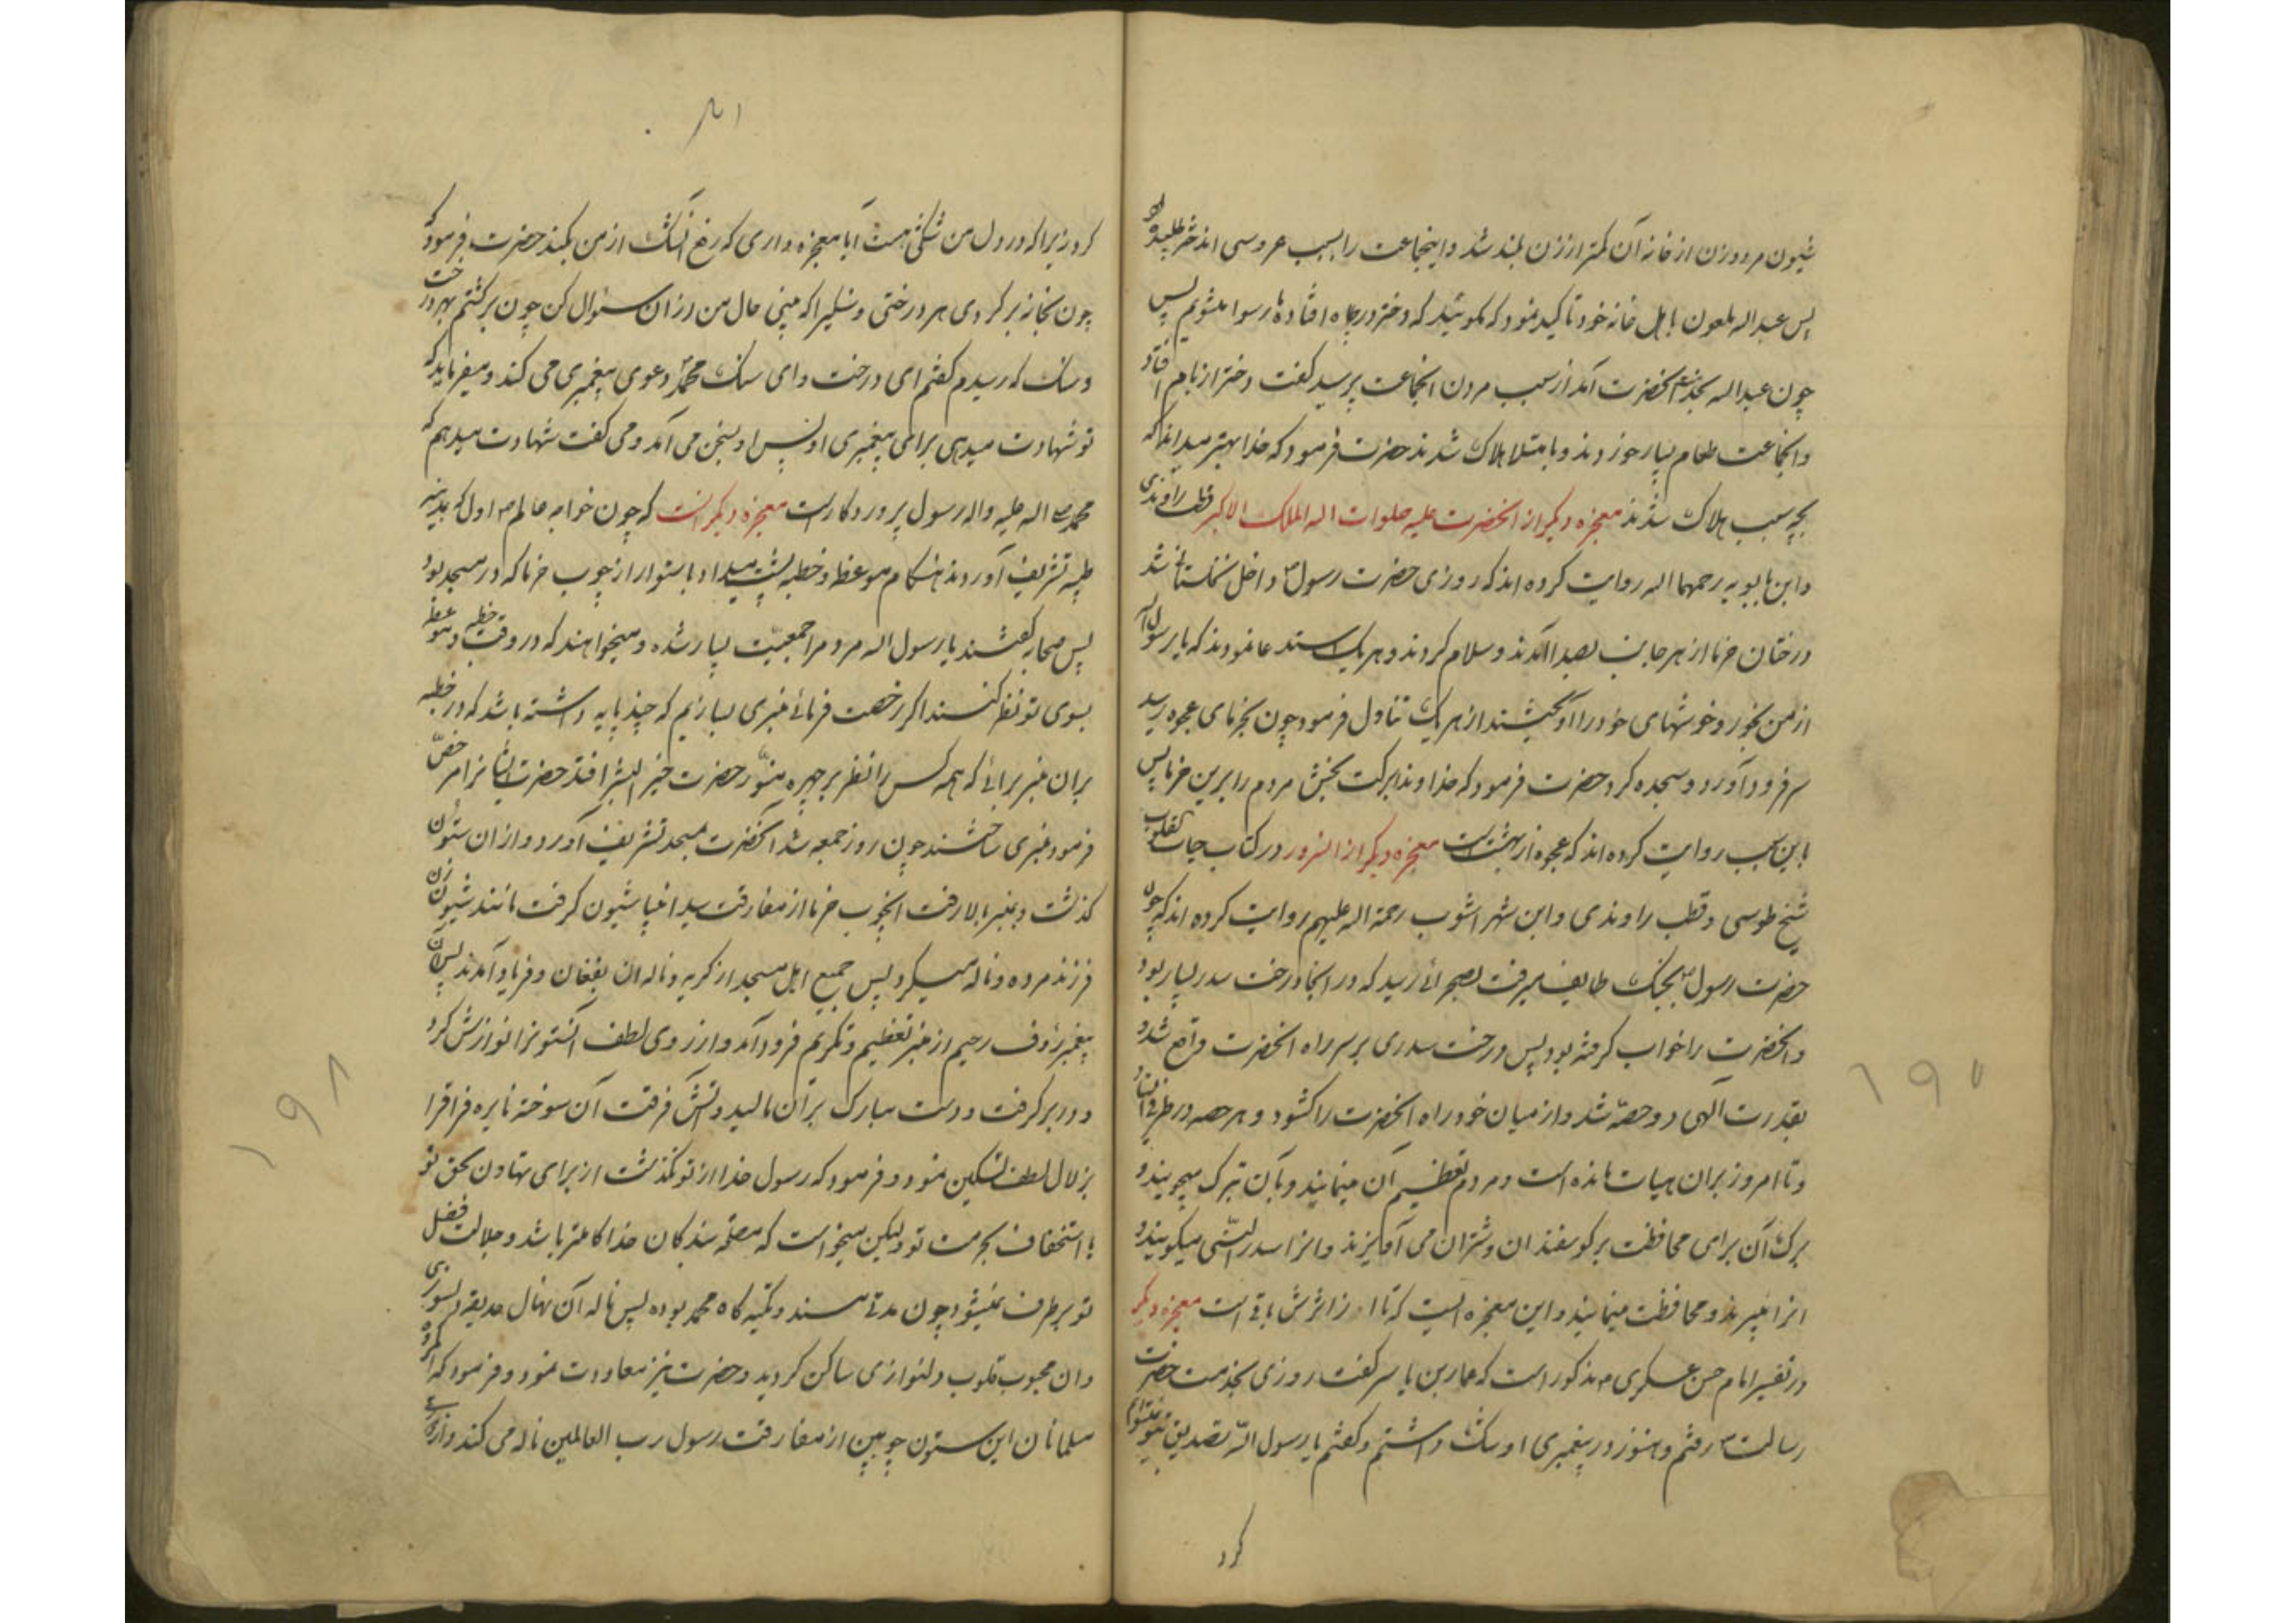 شیون مرد و زن از خانه آن کمتر از زن بلند شد و اینجماعت را بسبب عروسی اند خرطلبیده
پس عبداله ملعون باهل خانه خود تاکید نمود که مگوئید که دختر در چاه افتاده تا رسوا نشویم پس
چون عبداله بخدمت آنحضرت آمد از سبب مردن آنجماعت پرسید گفت دختر از بام افتاد
و آنجماعت طعام بسیار خوردند و بامتلا هلاک شدند حضرت فرمود که خدا بهتر میداند که
بچه سبب هلاک شدند معجزه دیگر از آنحضرت علیه صلوات اله الملک الاکبر قطب راوندی
و ابن بابویه رحمهما اله روایت کرده اند که روزی حضرت رسول ص داخل نخلستانی شد
درختان خرما از هر جانب بصدا آمدند و سلام کردند و هر یک استدعا نمودند که یا رسول اله
از من بخور و خوشهای خود را آویختند از هر یک تناول فرمود چون بخرمای عجوه رسید
سر فرود آورد و سجده کرد حضرت فرمود که خداوندا برکت بخش مردم را برین خرما پس
باین سبب روایت کرده اند که عجوه از بهشت است معجزه دیگر از السرور در کتاب حیات القلوب
شیخ طوسی و قطب راوندی و ابن شهر اشوب رحمة اله علیهم روایت کرده اند که چون
حضرت رسول ص بجنک طایف میرفت بصحرائی رسید که در آنجا درخت سدر بسیار بود
و آنحضرت را خواب گرفته بود پس درخت سدری بر سر راه آنحضرت واقع شد و
بقدرت آلهی دو حصه شد و از میان خود راه آنحضرت را کشود و هر حصه در طرفی ایستاد
و تا امروز بران هیات مانده است و مردم تعظیم آن مینمایند و بآن تبرک میجویند و
برک آن برای محافظت بر کوسفندان و شتران می آویزند و انرا سدر النبی میکویند و
انرا نمیبرند و محافظت مینمایند و این معجزه ایست که تا امروز اثرش باقی است معجزه دیگر
در تفسیر امام حسن عسکری ع مذکور است که عمار بن یاسر گفت روزی بخدمت حضرت
رسالت ص رفتم و هنوز در پیغمبری او شک داشتم و گفتم یا رسول اله تصدیق تو نمیتوانم
کرد
کرد زیرا که در دل من شکی هست آیا معجزه داری که رفع آنشک از من بکند حضرت فرمود که
چون بخانه بر کردی هر درختی و سنگیرا که بینی حال من از آن سئوال کن چون برگشتم بهر درخت
و سنک که رسیدم گفتم ای درخت و ای سنک محمد ص دعوی پیغمبری می کند و میفرماید که
تو شهادت میدهی برای پیغمبری او پس او بسخن می آمد و می گفت شهادت میدهم که
محمد صلی اله علیه واله رسول پروردکار است معجزه دیگر آنست که چون خواجه عالم ص اول که بمدینه
طیبه تشریف آوردند هنکام موعظه و خطبه پشت میداد باستوار از چوب خرما که در مسجد بود
پس صحابه گفتند یا رسول اله مردم را جمعیت بسیار شده و میخواهند که در وقت خطبه و موعظه
بسوی تو نظر کنند اگر رخصت فرمائی منبری بسازیم که چند پایه داشته باشد که در خطبه
بران منبر برائی که همه کس را نظر بر چهره منور حضرت خیر البشر افتد حضرت ایشانرا مرخص
فرمود منبری ساختند چون روز جمعه شد آنحضرت بمسجد تشریف آورد و از ان ستون
کذشت و بمنبر بالا رفت آنچوب خرما از مفارقت سید انبیا شیون کرفت مانند شیون زن
فرزند مرده و ناله میکرد پس جمیع اهل مسجد از کریه و ناله ان بفغان و فریاد آمدند پس آن
پیغمبر رؤف رحیم از منبر تعظیم و تکریم فرود آمد و از روی لطف آنستونرا نوازش کرد
و در بر کرفت و دست مبارک بر آن مالید و آتش فرقت آن سوخته نایره فراقرا
بزلال لطف تسکین نمود و فرمود که رسول خدا از تو نکذشت از برای تهاون بحق تو
با استخفاف بحرمت تو ولیکن میخواست که مصلحة بندکان خدا کاملتر باشد و جلالت فضل
تو برطرف نمیشود چون مدتی مسند و تکیه کاه محمد بوده پس ناله آن نهال حدیقه دلسوزی
و ان محبوب قلوب دلنوازی ساکن کردید و حضرت نیز معاودت نمود و فرمود که ای گروه
مسلمانان این ستون چوبین از مفارقت رسول رب العالمین ناله می کند و از